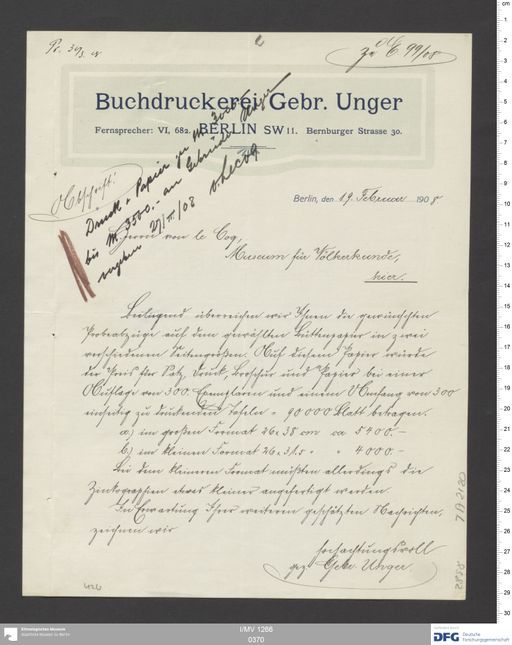 zu E. 99/08
Buchdruckerei Gebr. Unger
Fernsprecher: VI, 682. BERLIN SW 11. Bernburger Strasse 30.
Abschrift!
Druck + Papier zu M. 3000.-
bis M. 3500.- an Gebrüder Unger
vergeben 29/II/08 v. LeCoq
Berlin, den 19. Februar 1908
Herrn von le Coq,
Museum für Völkerkunde,
hier.
Beiliegend überreichen wir Ihnen die gewünschten
Probeabzüge auf dem gewählten Büttenpapier in zwei
verschiedenen Seitengrößen. Auf diesem Papier würde
der Preis für Satz, Druck, Broschur und Papier bei einer
Auflage von 300 Exemplaren und einem Umfang von 300
einseitig zu druckenden Tafeln = 90000 Blatt betragen.
a) im großen Format 26 x 38 cm ca 5400.-
b) im kleinen Format 26 x 31.5 " " 4000.-
Bei dem kleineren Format müßten allerdings die
Zinkographien etwas kleiner angefertigt werden.
In Erwartung Ihrer weiteren geschätzten Nachrichten,
zeichnen wir
hochachtungsvoll
gez. Gebr. Unger.
Ethnologisches Museum
Staatliche Museen zu Berlin
I/MV 1266
0370
DFG Deutsche
Forschungsgemeinschaft